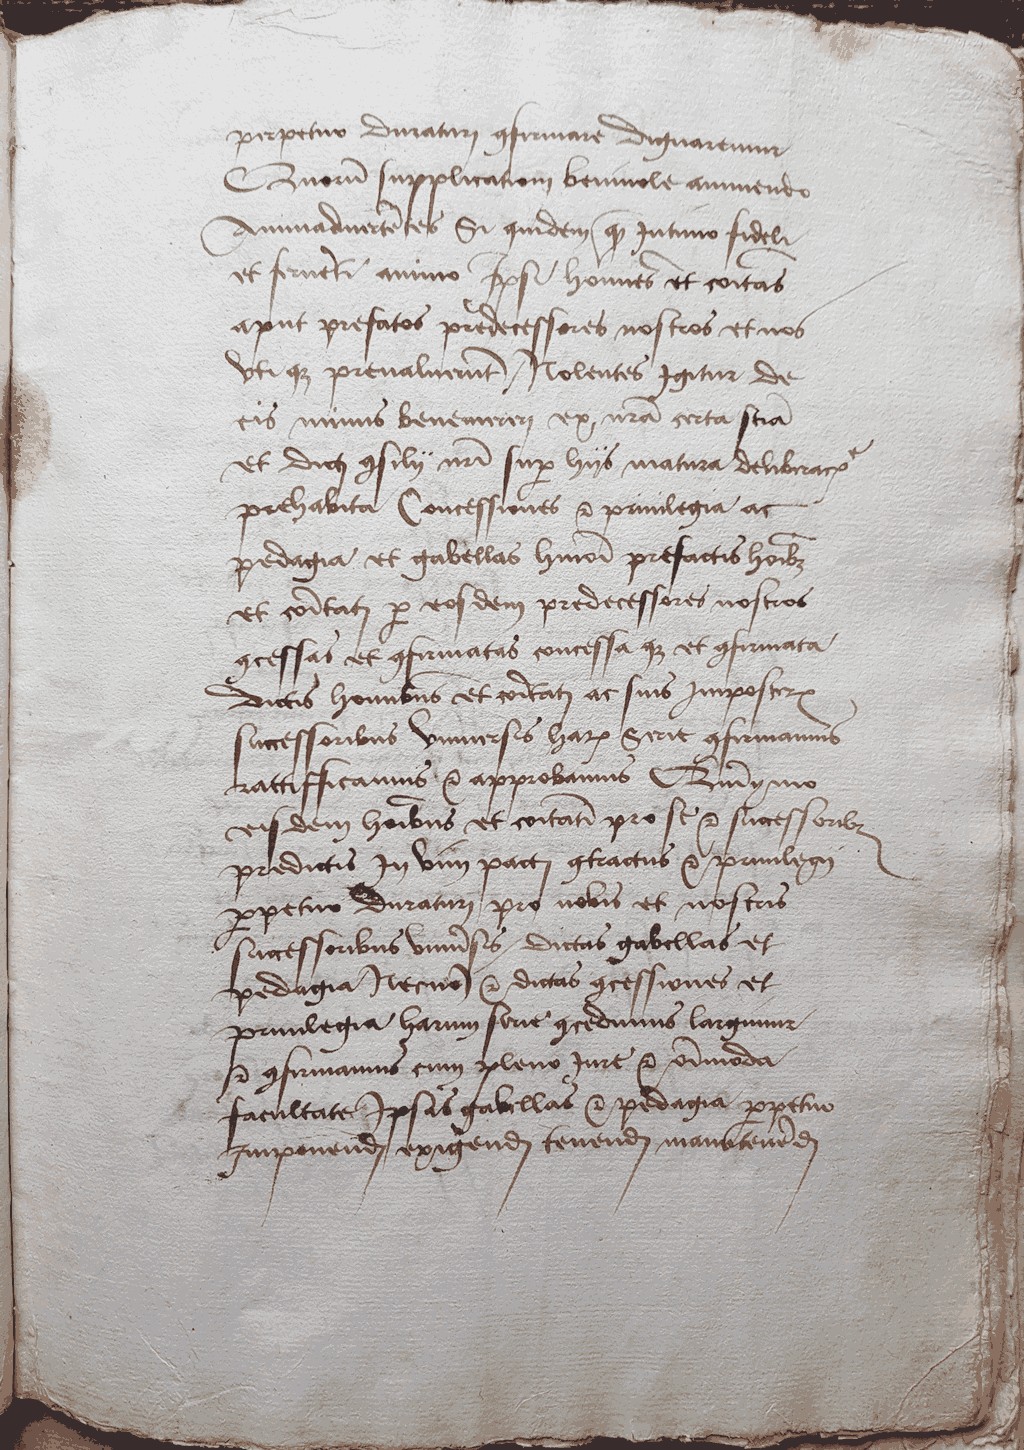 perpetuo duraturi ꝯfirmare dignaremur
Quorũ supplicationi beniuole annuendo
Animaduertẽtes Si quidem qꝫ Intimo fideli
et feruẽti animo Ipsi hoines et coitas
aput prefatos predecessores nostros et nos
vti qꝫ preualuerũt / Nolentes Igitur de
eis minus benemereri ex nrã certa sciã
et dicti ꝯsilij nrĩ suꝑ hijs matura deliberacõe
prehabita Concessiones ⁊ priuilegia ac
pedagia et gabellas hmõi prefactis hoibꝫ
et coitati ꝑ eosdem predecessores nostros
ꝯcessas et ꝯfirmatas concessa qꝫ et ꝯfirmata
dictis hominibus et coitati ac suis Imposterꝝ
successoribus vniuersis harꝝ Serie ꝯfirmamus
rattifficamus ⁊ approbamus Quinymo
eisdem hoibus et coitati pro se ⁊ successoribꝫ
predictis In vim pacti ꝯtractus ⁊ priuilegij
ꝑpetuo duraturi pro nobis et nostris
successoribus vniũsis / dictas gabellas et
pedagia Necnõ ⁊ dictas ꝯcessiones et
priuilegia harum serie ꝯcedimus largimur
⁊ ꝯfirmamus cum pleno Jure ⁊ oimoda
facultate Ipsas gabellas ⁊ pedagia ꝑpetuo
Imponendi exigendi tenendi manutenẽdi